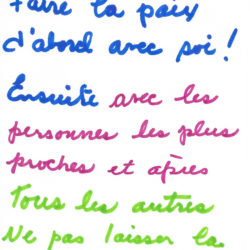 Faire la paix
d'abord avec soi !
Ensuite avec les
personnes les plus
proches et après
Tous les autres
Ne pas laisser la